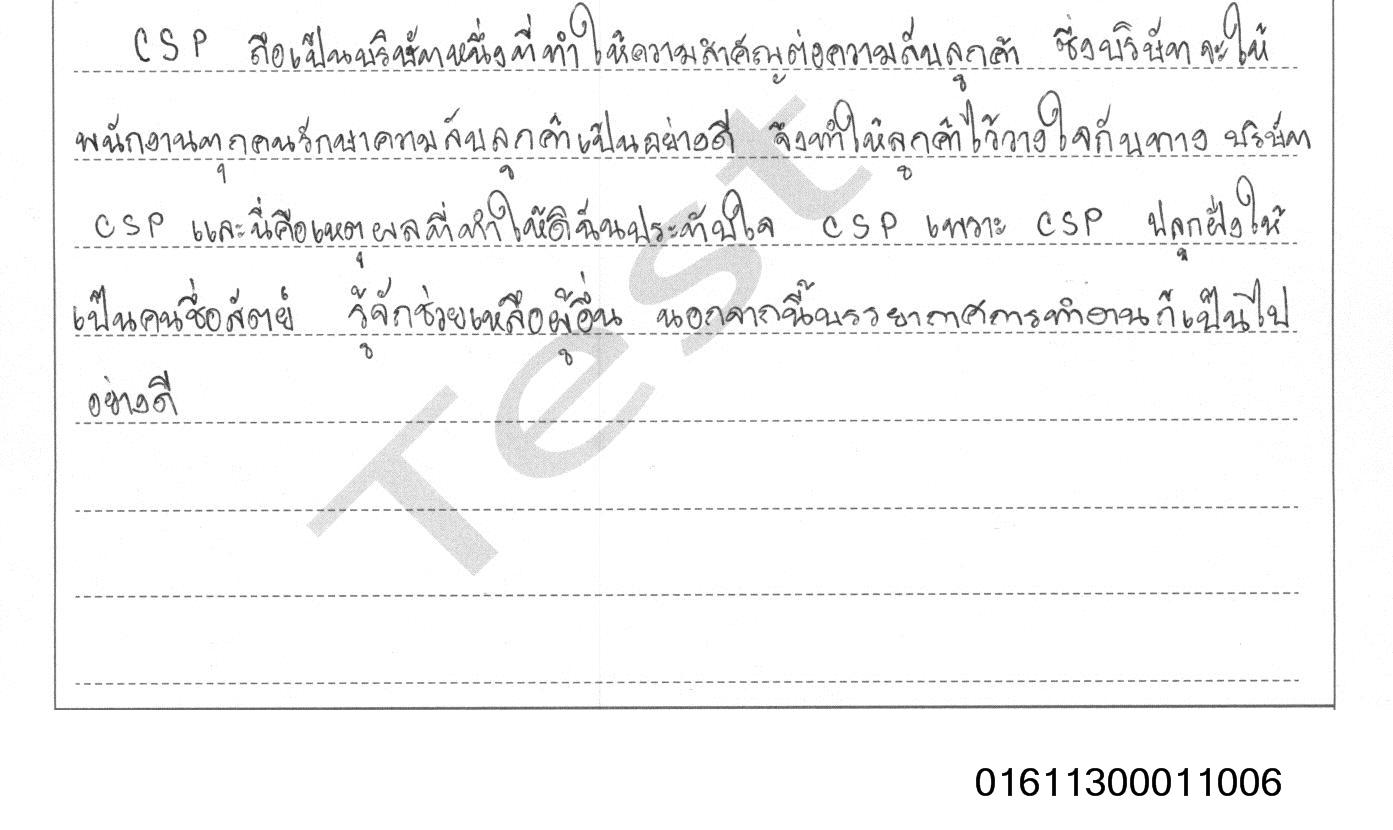 CSP ถือเป็นบริษัทหนึ่งที่ทำให้ความสำคัญต่อความลับลูกค้า ซึ่งบริษัทจะให้
พนักงานทุกคนรักษาความลับลูกค้าเป็นอย่างดี จึงทำให้ลูกค้าไว้วางใจกับทาง บริษัท
CSP และนี่คือเหตุผลที่ทำให้ดิฉันประทับใจ CSP เพราะ CSP ปลูกฝังให้
เป็นคนซื่อสัตย์ รู้จักช่วยเหลือผู้อื่น นอกจากนี้บรรยากาศการทำงานก็เป็นไป
อย่างดี
Test
01611300011006